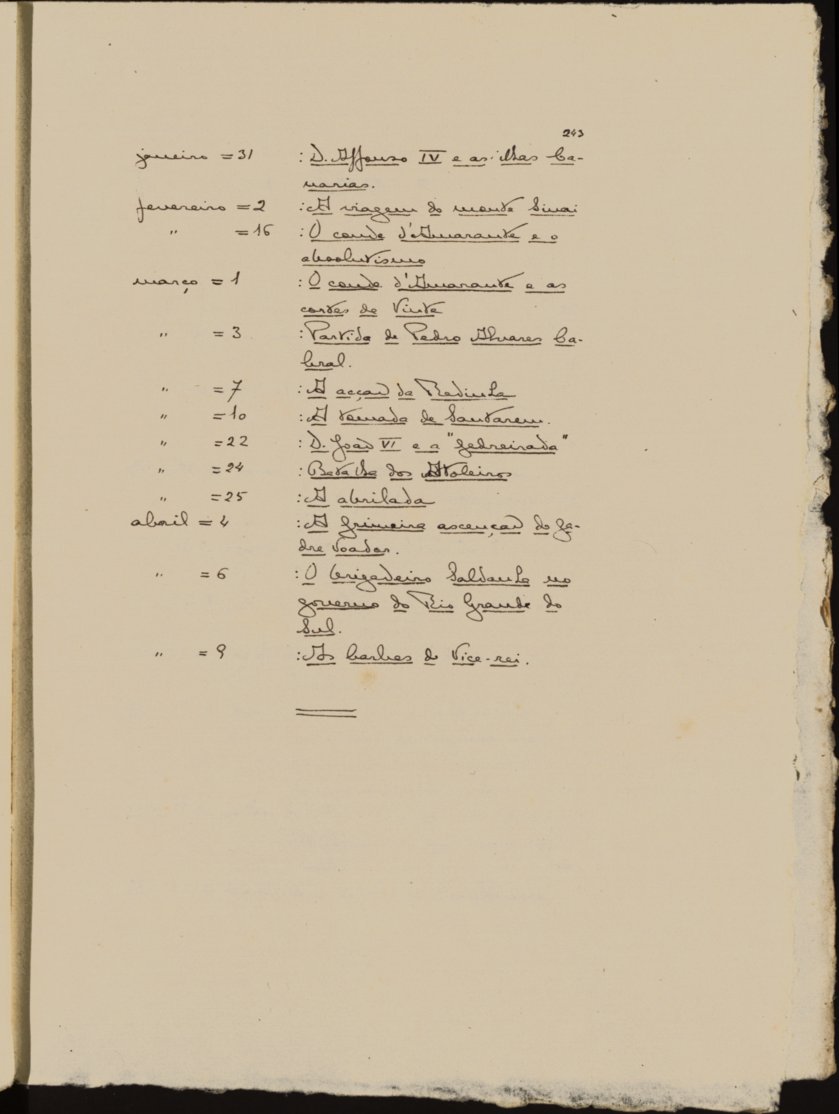 243
janeiro = 31 : D. Affonso IV e as ilhas Ca-
narias.
fevereiro = 2 : A viagem do monte Sinai
" = 16 : O conde d'Amarante e o
absolutismo
março = 1 : O conde d'Amarante e as
cortes de Vinte
" = 3 : Partida de Pedro Alvares Ca-
bral.
" = 7 : A acção da Redinha
" = 10 : A tomada de Santarem.
" = 22 : D. João VI e a "
" = 24 : Batalha dos Atoleiros
" = 25 : A abrilada
abril = 4 : A primeira ascenção do pa-
dre Voador.
" = 6 : O brigadeiro Saldanha no
governo do Rio Grande do
Sul.
" = 9 : As barbas do Vice-rei.